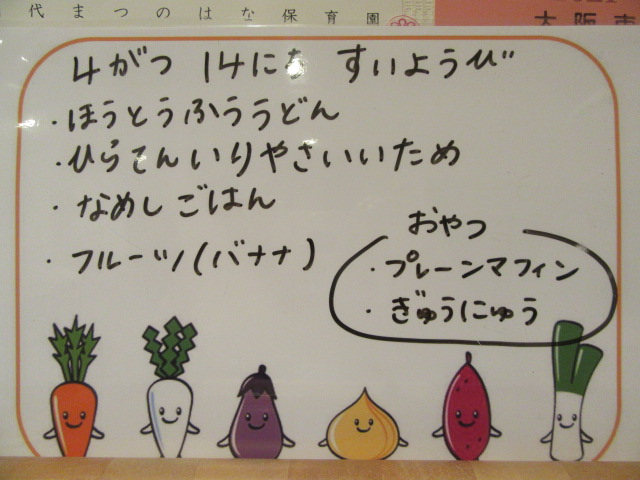 代まつのはな保育園
大阪市
4がつ 14にち すいようび
・ほうとうふううどん
・ひらてんいりやさいいため
・なめしごはん
・フルーツ(バナナ)
おやつ
・プレーンマフィン
・ぎゅうにゅう